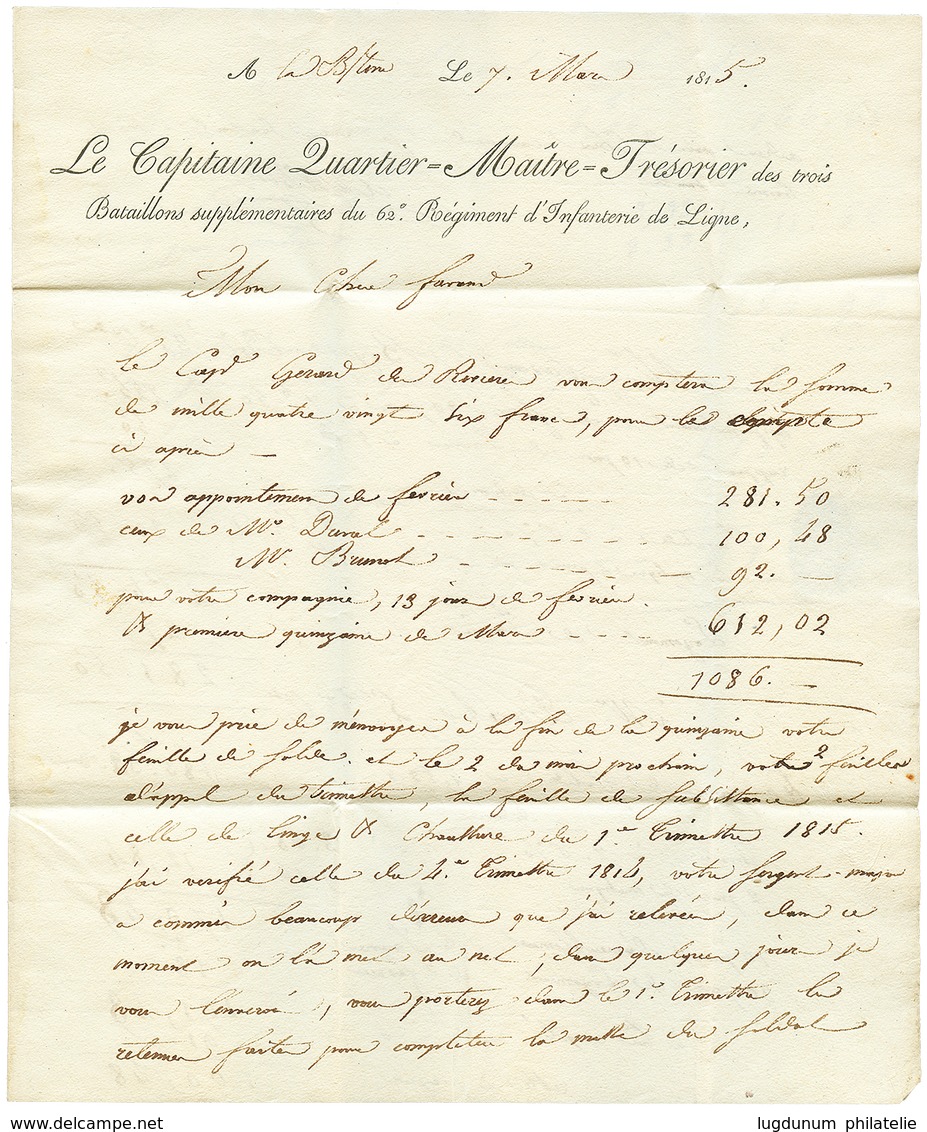 A Le 7. Mars 1815.
Le Capitaine Quartier=Maître=Trésorier des trois
Bataillons supplémentaires du 62e. Régiment d'Infanterie de Ligne,
Mon Cher farand
le Capne Gerard de Riviere vous comptera la somme
de mille quatre vingt six francs, pour le compte
ci après —
vos appointemens de fevrier - - - - - - 281. 50
ceux de Mr. Duval - - - - - - - - 100, 48
Mr. Brunot - - - - - - 92. —
pour votre compagnie, 13 jours de fevrier.
& premiere quinzaine de Mars - - - - - 612, 02
1086. —
je vous prie de m'envoyer à la fin de la quinzaine votre
feuille de solde. et le 2 du mois prochain, votre feuilles
d'appel du trimestre, la feuille de subsistance et
celle de linge & chaussure du 1er Trimestre 1815.
j'ai verifié celle du 4e Trimestre 1814, votre sergent-major
a commis beaucoup d'erreurs que j'ai relevées, dans ce
moment on la met au net, dans quelques jours je
vous l'enverrai, vous porterez dans le 1er Trimestre les
retenues faites pour completer la masse du soldat
www.delcampe.net lugdunum philatelie